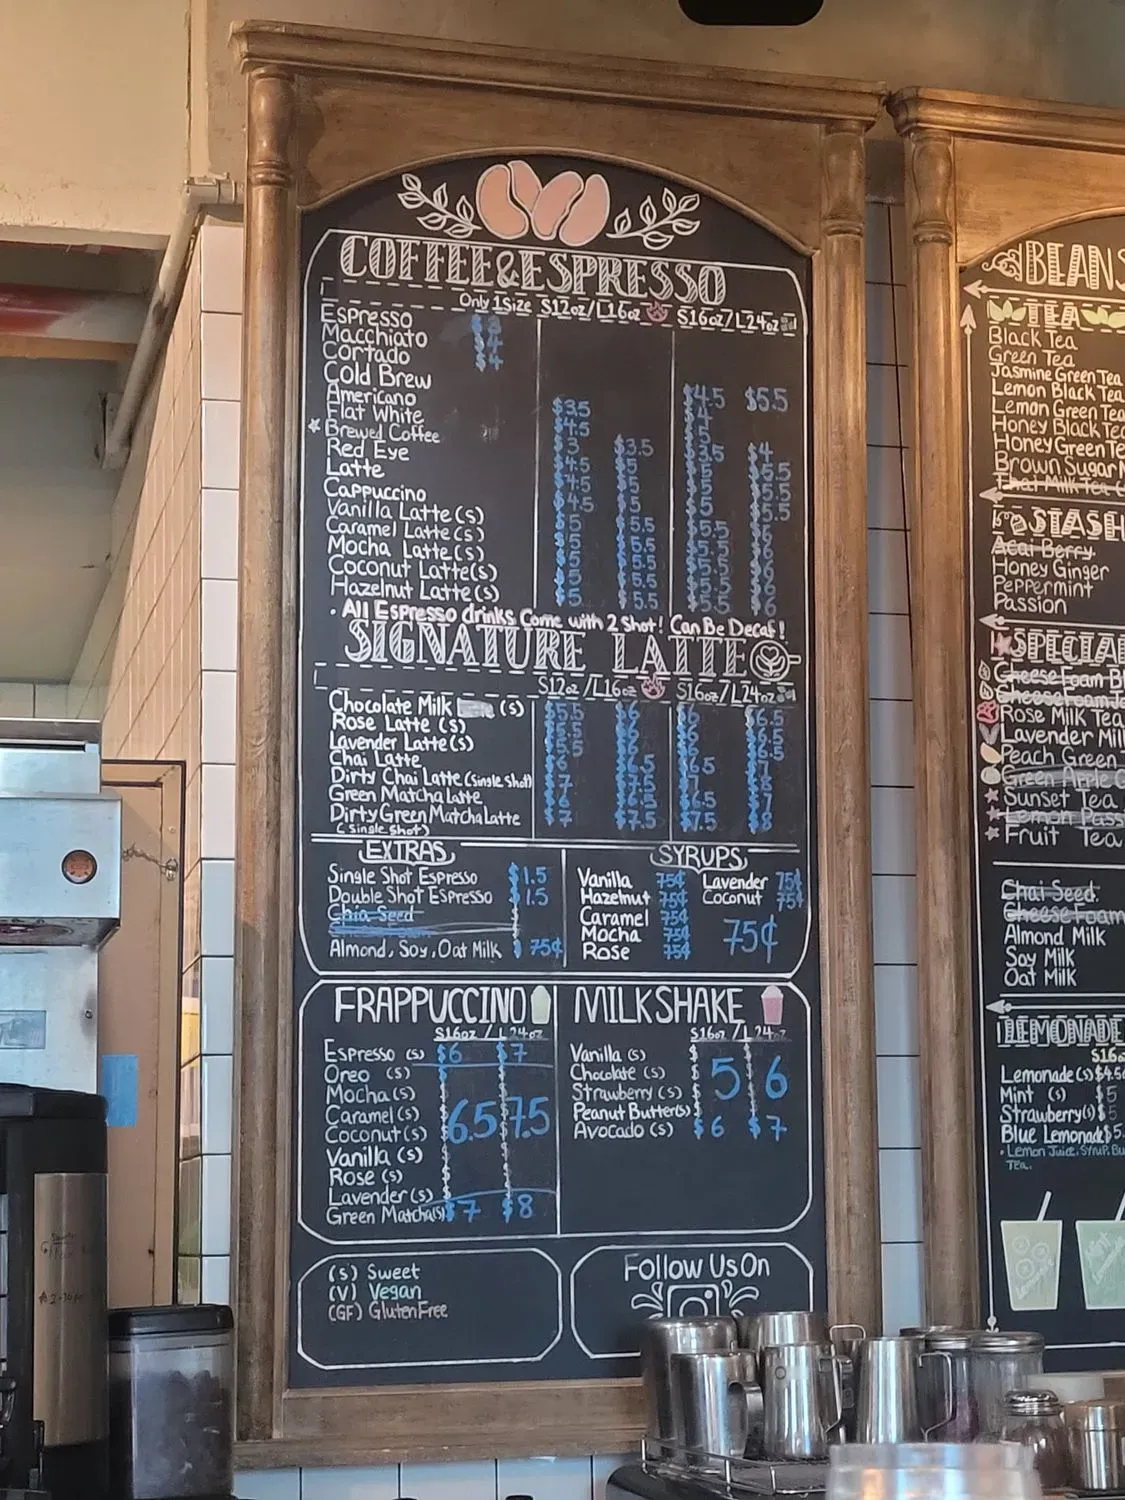 COFFEE&ESPRESSO
Only 1 Size S12oz/L16oz S16oz/L24oz
Espresso $3
Macchiato $4
Cortado $4
Cold Brew $4.5 $5.5
Americano $3.5 $4
Flat White $4.5 $5
Brewed Coffee $3 $3.5 $3.5 $4
Red Eye $4.5 $5 $5 $5.5
Latte $4.5 $5 $5 $5.5
Cappuccino $4.5 $5 $5 $5.5
Vanilla Latte(s) $5 $5.5 $5.5 $6
Caramel Latte(s) $5 $5.5 $5.5 $6
Mocha Latte(s) $5 $5.5 $5.5 $6
Coconut Latte(s) $5 $5.5 $5.5 $6
Hazelnut Latte(s) $5 $5.5 $5.5 $6
• All Espresso drinks Come with 2 Shot! Can Be Decaf!
SIGNATURE LATTE
S12oz/L16oz S16oz/L24oz
Chocolate Milk (s) $5.5 $6 $6 $6.5
Rose Latte (s) $5.5 $6 $6 $6.5
Lavender Latte(s) $5.5 $6 $6 $6.5
Chai Latte $6 $6.5 $6.5 $7
Dirty Chai Latte (Single Shot) $7 $7.5 $7 $8
Green Matcha Latte $6 $6.5 $6.5 $7
Dirty Green Matcha Latte $7 $7.5 $7.5 $8
(Single Shot)
EXTRAS
Single Shot Espresso $1.5
Double Shot Espresso $1.5
Chia Seed
Almond, Soy, Oat Milk $75¢
SYRUPS
Vanilla 75¢ Lavender 75¢
Hazelnut 75¢ Coconut 75¢
Caramel 75¢
Mocha 75¢ 75¢
Rose 75¢
FRAPPUCCINO
S16oz / L24oz
Espresso (s) $6 $7
Oreo (s)
Mocha (s)
Caramel (s) 6.5 7.5
Coconut (s)
Vanilla (s)
Rose (s)
Lavender (s)
Green Matcha(s) $7 $8
MILKSHAKE
S16oz / L24oz
Vanilla (s)
Chocolate (s) 5 6
Strawberry (s)
Peanut Butter(s)
Avocado (s) $6 $7
(S) Sweet
(V) Vegan
(GF) Gluten Free
Follow Us On
BEANS
TEA
Black Tea
Green Tea
Jasmine Green Tea
Lemon Black Tea
Lemon Green Tea
Honey Black Tea
Honey Green Te
Brown Sugar M
Thai Milk Tea (
STASH
Acai Berry
Honey Ginger
Peppermint
Passion
SPECIAL
Cheese Foam Bl
Cheese Foam Ja
Rose Milk Tea
Lavender Mil
Peach Green
Green Apple G
Sunset Tea
Lemon Pass
Fruit Tea
Chai Seed
Cheese Foam
Almond Milk
Soy Milk
Oat Milk
LEMONADE
S16o
Lemonade(s) $4.5
Mint (s) $5
Strawberry(s) $5
Blue Lemonade $5.
• Lemon Juice, Syrup, Bu
Tea.